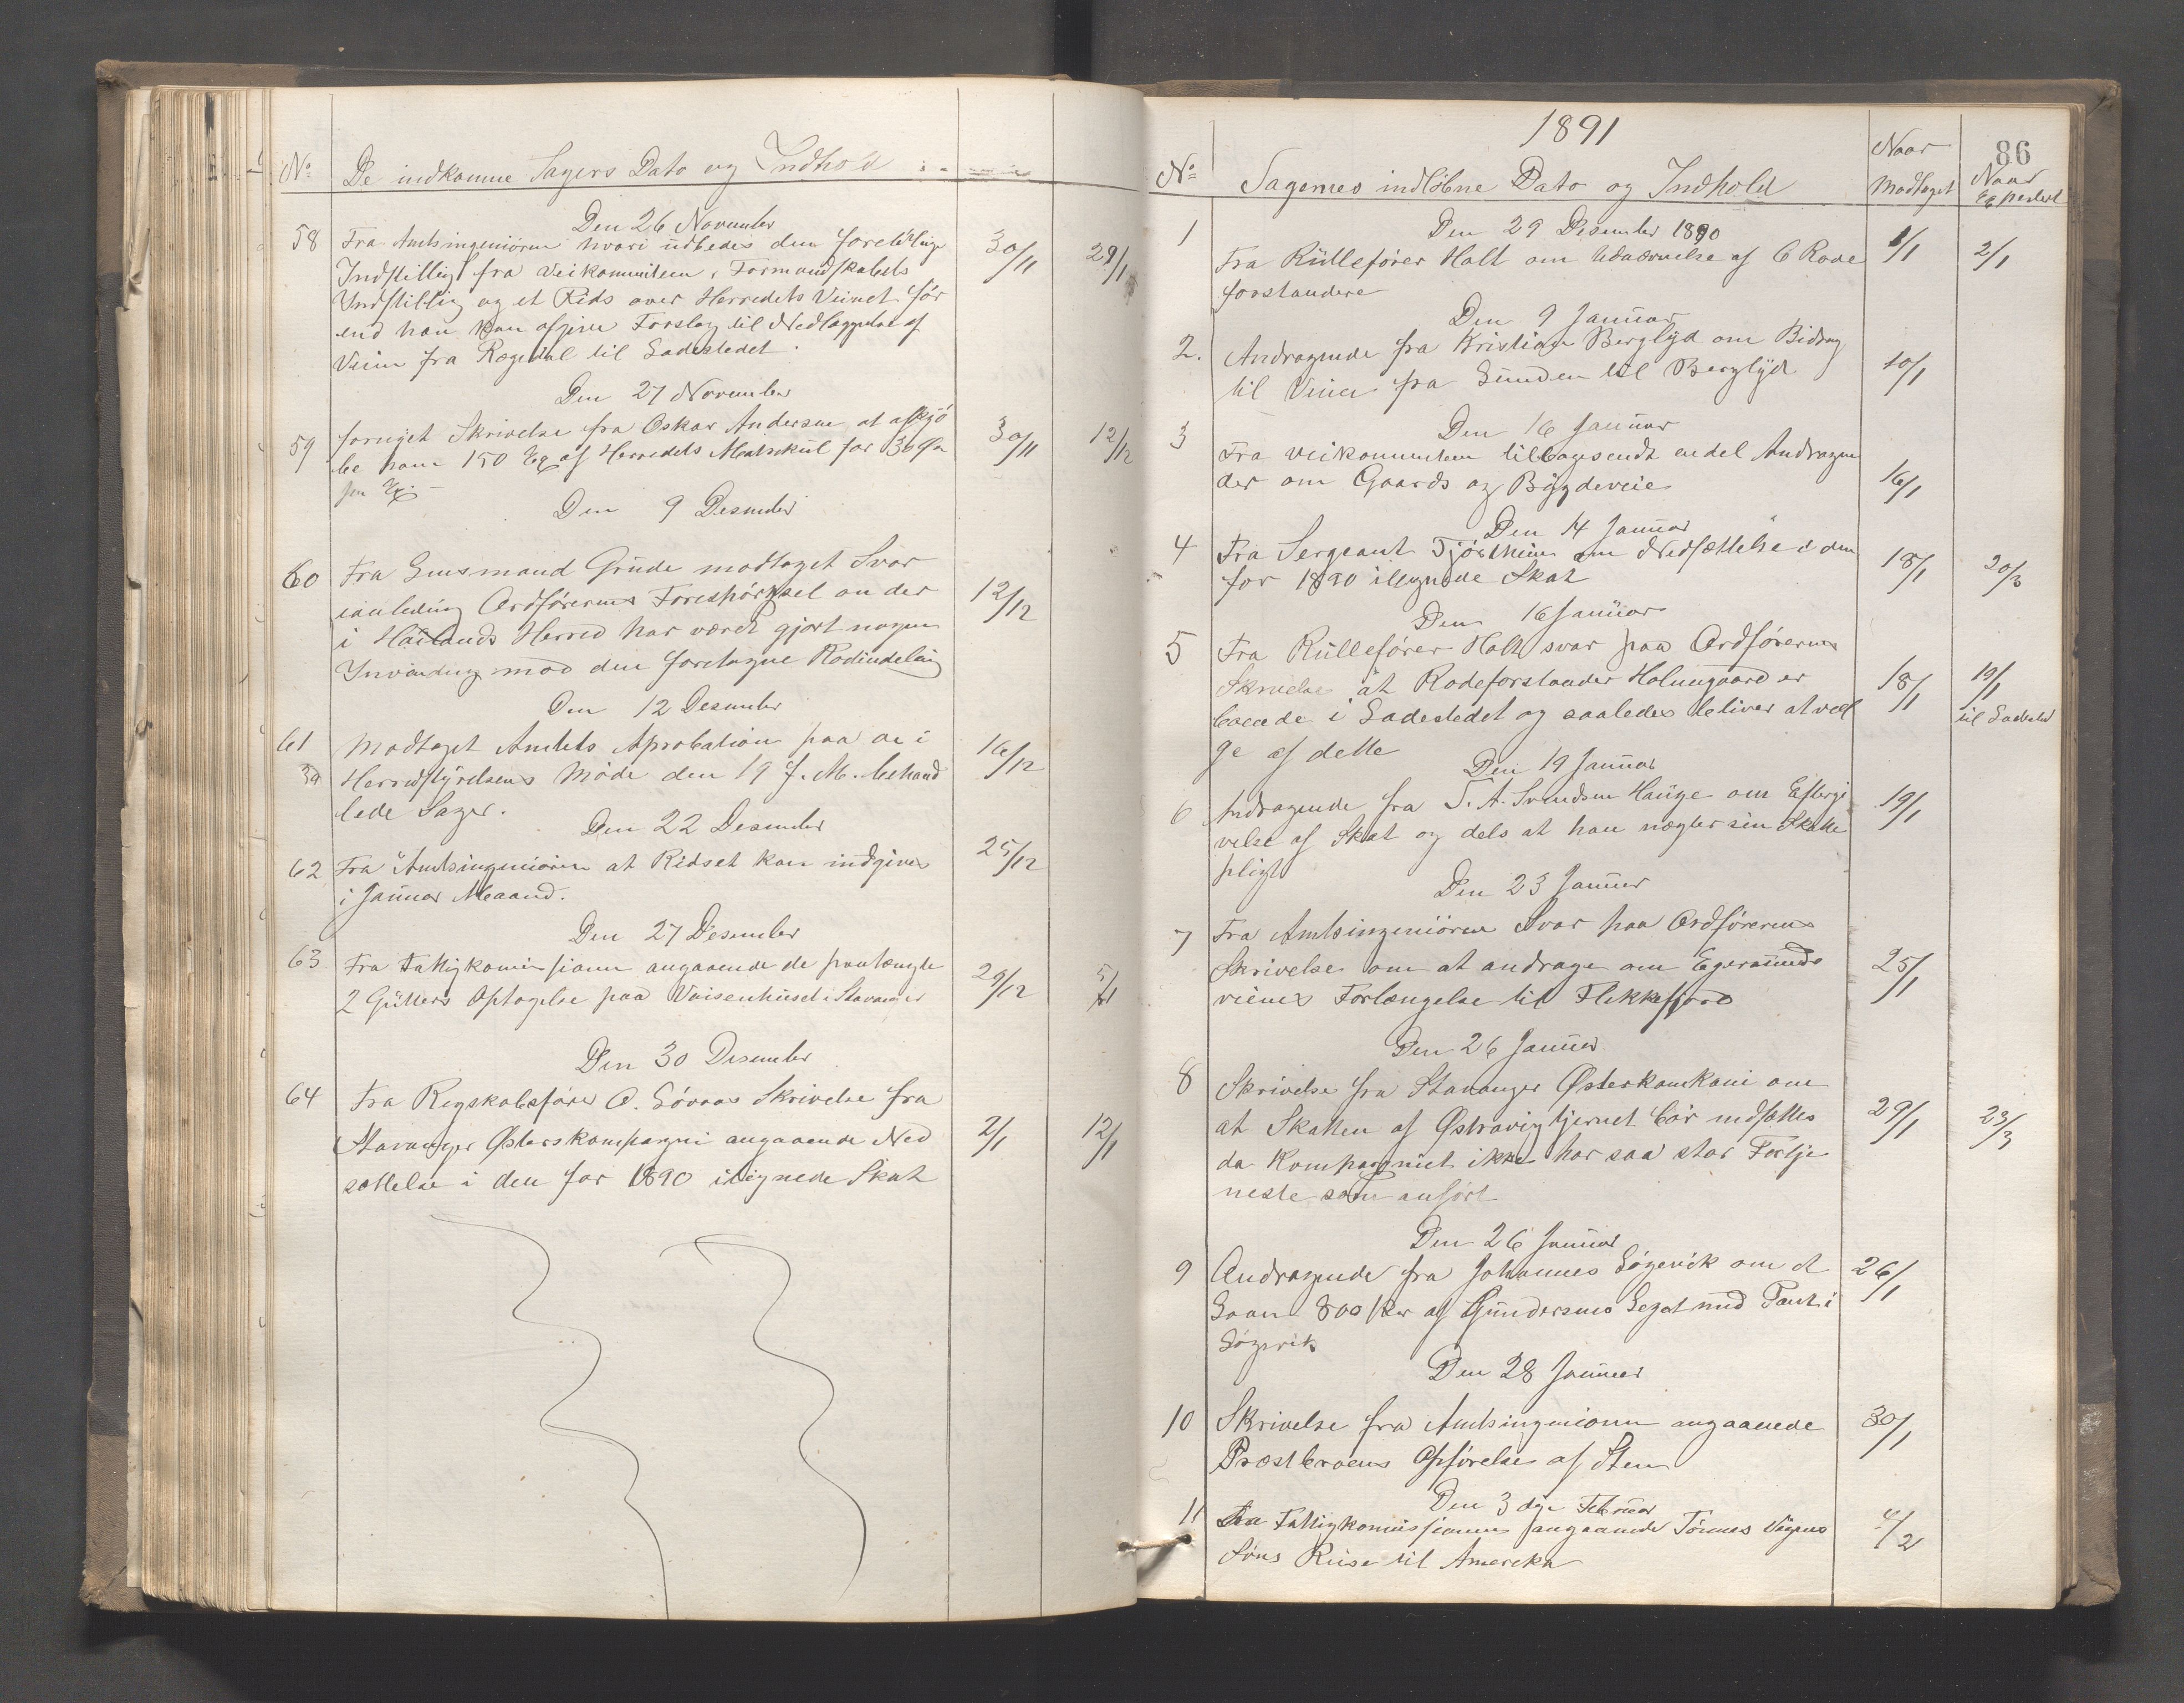 No De indkomne Sagers Dato og Indhold
Den 26 November
58 Fra Amtsingeniøren hvori udbedes den foreløbige 30/11 29/1
Indstillig fra Veikommiteen, Formandskabets
Indstillig og et Rids over Herredets Veinet før
end han kan afgive Forslag til Nedlæggelse af
Veien fra Rægedal til Ladestedet.
Den 27 November
59 fornyet Skrivelse fra Oskar Andersen at afkjø 30/11 12/12
be ham 150 Ex af Herredets Matrikul for 30 Øre
pr Ex.
Den 9 Desember
60 Fra Lensmand Grude modtaget Svar 12/12
ianleding Ordførerens Forespørgsel om der
i Haalands Herred har været gjort nogen
Invending mod den foretagne Rodeindeling
Den 12 Desember
61 Modtaget Amtets Aprobation paa de i 16/12
Herredstyrelsens Møde den 19 f. M. behand
lede Sager.
Den 22 Desember
62 Fra Amtsingeniøren at Ridset kan indgives 25/12
i Januar Maaned.
Den 27 Desember
63 Fra Fattigkomissionen angaaende de paatængte 29/12 5/1
2 Gutters Optagelse paa Vaisenhuset i Stavanger
Den 30 Desember
64 Fra Regskabsfører O. Løvaas Skrivelse fra
Stavanger Østerskompagni angaaende Ned 2/1 12/1
sættelse i den for 1890 ilignede Skat
1891
86
No Sagernes indløbne Dato og Indhold Naar Modtaget Naar Expederet
1 Den 29 Desember 1890
Fra Rullefører Holt om Udnævnelse af 6 Rode 1/1 2/1
forstandere
Den 9 Januar
2. Andragende fra Kristian Berglyd om Bidrag
til Veien fra Sunden til Berglyd 10/1
Den 16 Januar
3 Fra Veikommiteen tilbagesendt endel Andragen
der om Gaards og Bygdeveie 16/1
Den 14 Januar
4 Fra Sergeant Tjørsheim om Nedsættelse i den 18/1 20/3
for 1890 ilignede Skat
Den 16 Januar
5 Fra Rullefører Holt svar paa Ordførerens
Skrivelse at Rodeforstander Holmgaard er 18/1 19/1
boende i Ladestedet og saaledes bliver at væl til Ladested
ge af dette
Den 19 Januar
6 Andragende fra T. A. Svendsen Hauge om Eftergi 19/1
velse af Skat og dels at han nægter sin Skatte
pligt
Den 23 Januar
7 Fra Amtsingeniøren Svar paa Ordførerens
Skrivelse om at andrage om Egersunds 25/1
veiens Forlængelse til Flekkefjord
Den 26 Januar
8 Skrivelse fra Stavanger Østerskomkani om
at Skatten af Østravigtjernet bør nedsættes 29/1 23/3
da Kompagniet ikke har saa stor Fortje
neste som anført
Den 26 Januar
9 Andragende fra Johannes Løgevik om et 26/1
Laan 800 Kr af Gundersens Legat med Pant i
Løgevik
Den 28 Januar
10 Skrivelse fra Amtsingeniøren angaaende 30/1
Præstbroens Opførelse af Sten
Den 3 dje Februar
11 Fra Fattigkomissionen angaaende Tønnes 4/2
Søns Reise til Amerika